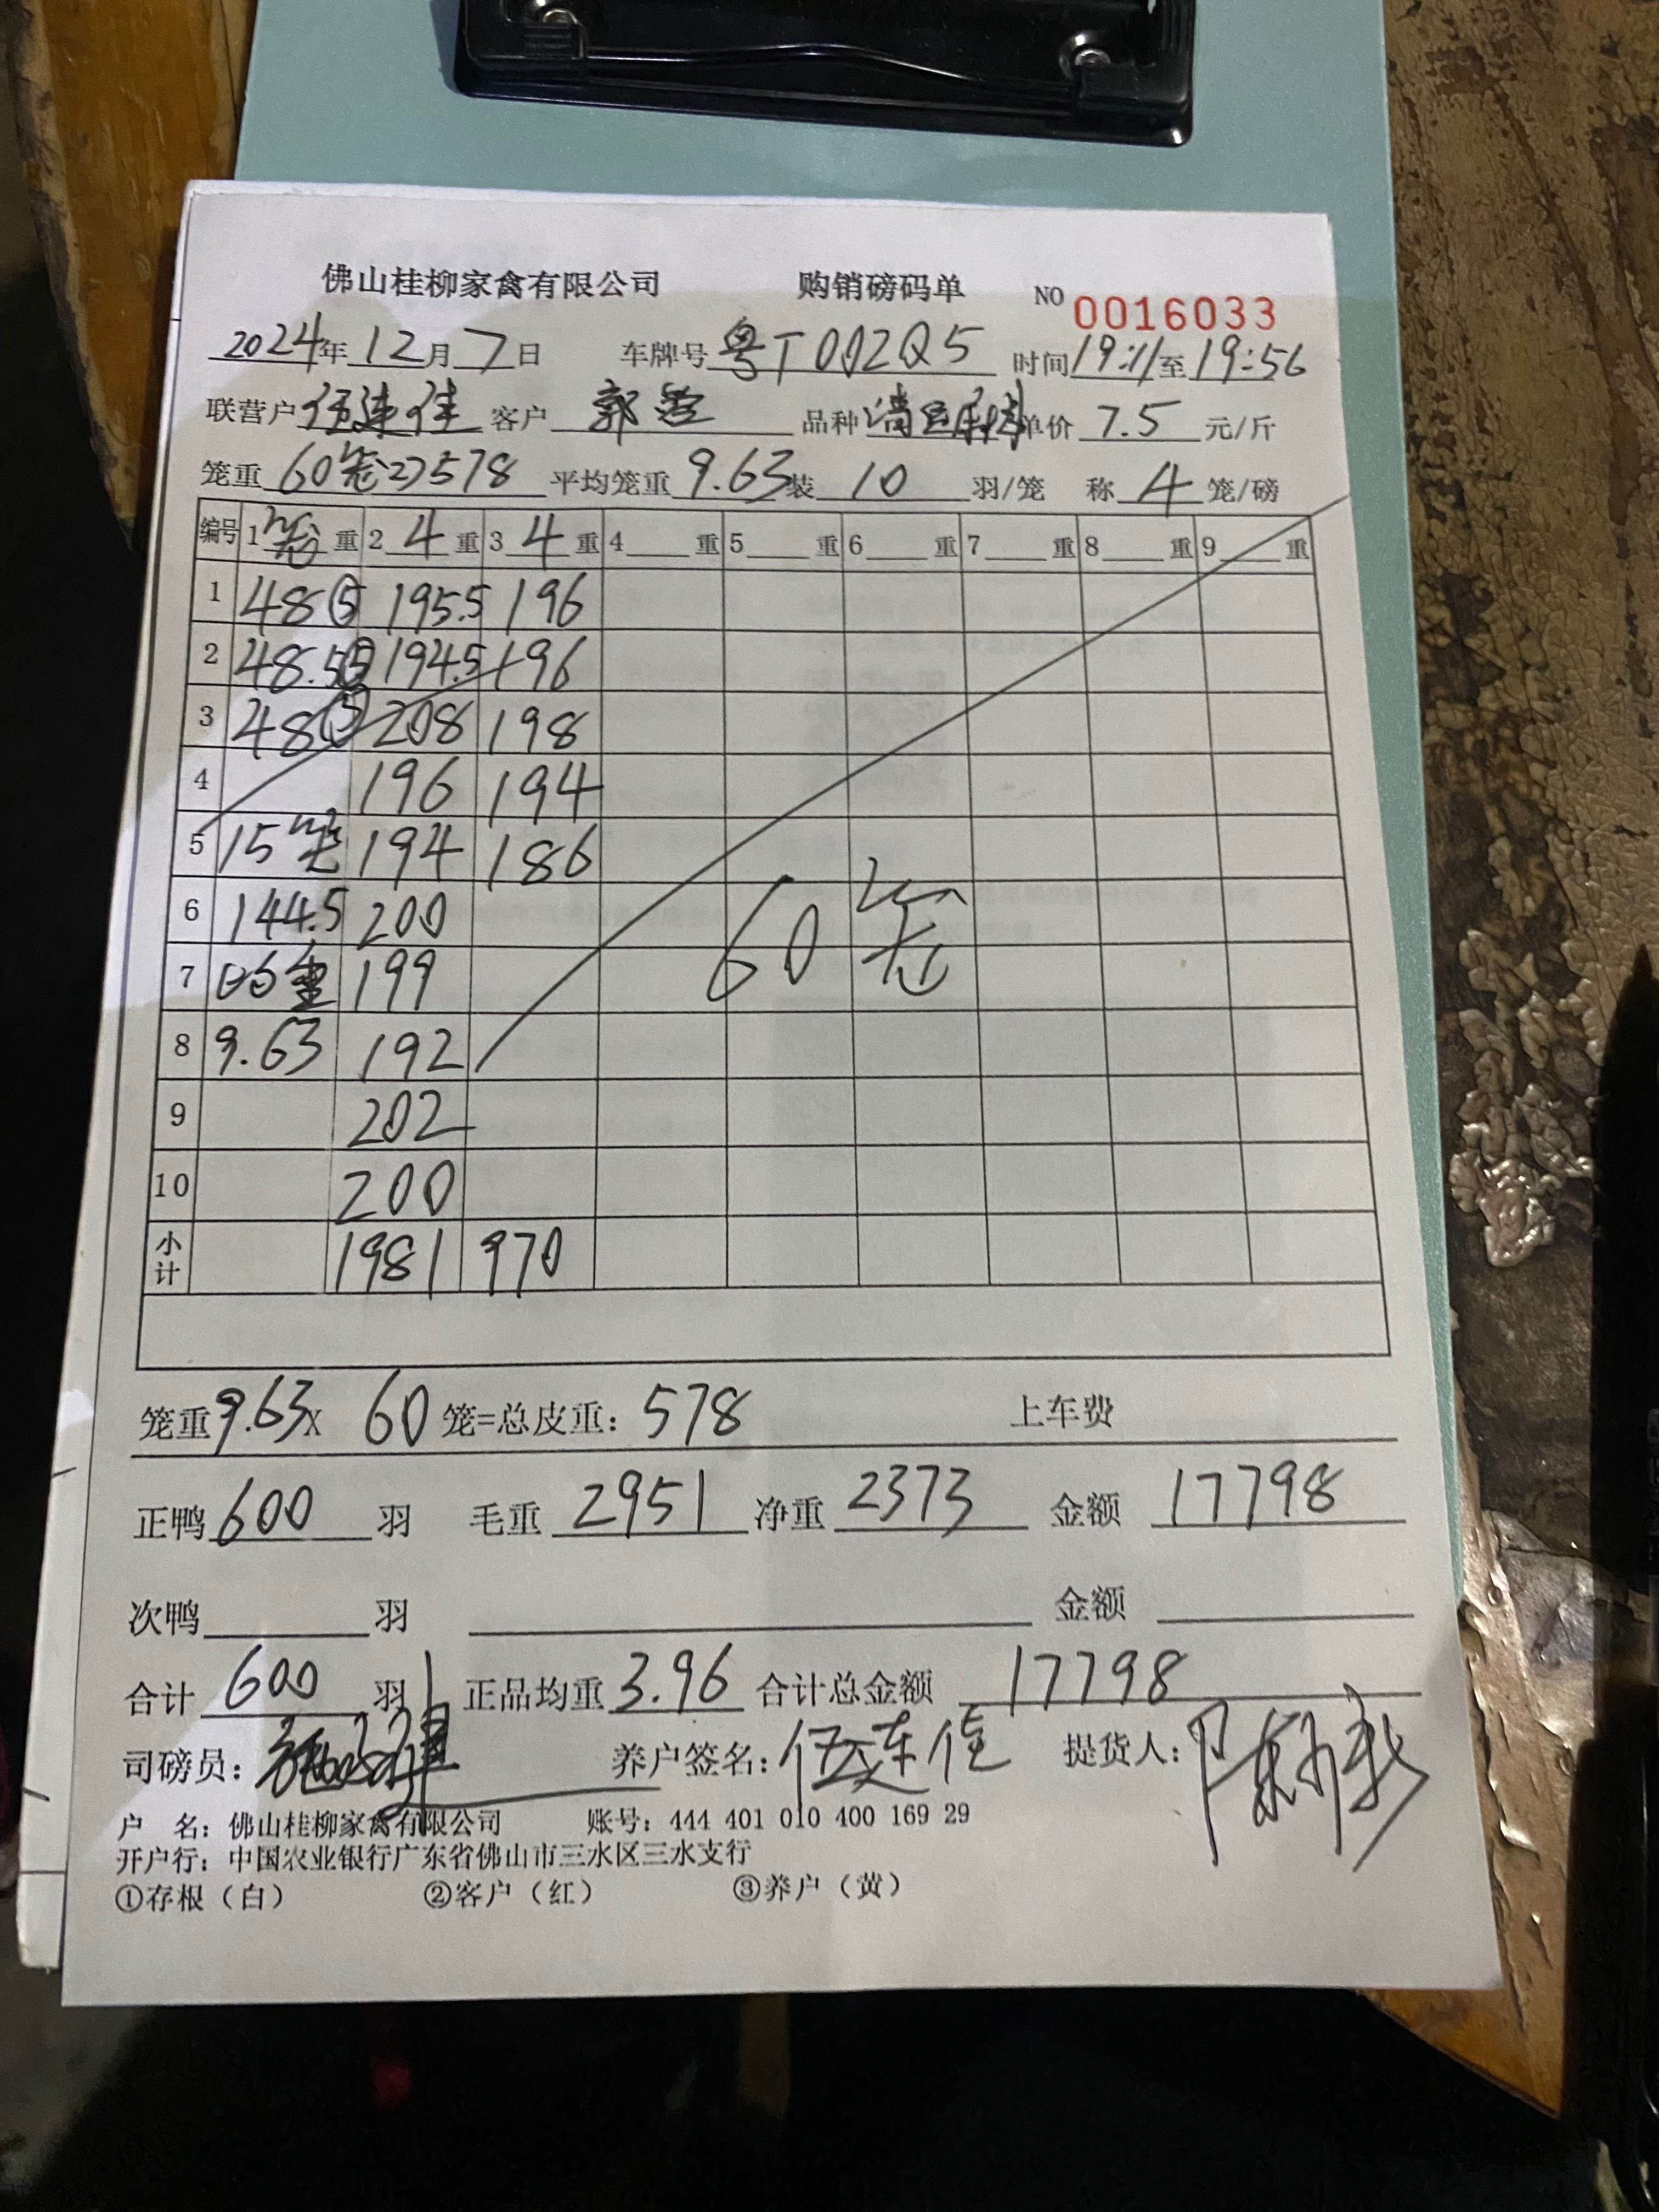 佛山桂柳家禽有限公司 购销磅码单 NO 0016033
2024年12月7日 车牌号 粤T002Q5 时间 19:11至19:56
联营户 伍连佳 客户 郭 品种 单价 7.5 元/斤
笼重 60笼 578 平均笼重 9.63 装 10 羽/笼 称 4 笼/磅
编号 1 笼 重 2 4 重 3 4 重 4 重 5 重 6 重 7 重 8 重 9 重
1 48⑤ 195.5 196
2 48.5⑤ 194.5 196
3 48⑤ 208 198
4 196 194
5 15笼 194 186
6 144.5 200
7 均重 199
8 9.63 192
60笼
9 202
10 200
小计 1981 970
笼重 9.63 X 60 笼=总皮重: 578 上车费
正鸭 600 羽 毛重 2951 净重 2373 金额 17798
次鸭 羽 金额
合计 600 羽 正品均重 3.96 合计总金额 17798
司磅员: 养户签名: 伍连佳 提货人:
户 名: 佛山桂柳家禽有限公司 账号: 444 401 010 400 169 29
开户行: 中国农业银行广东省佛山市三水区三水支行
①存根(白) ②客户(红) ③养户(黄)